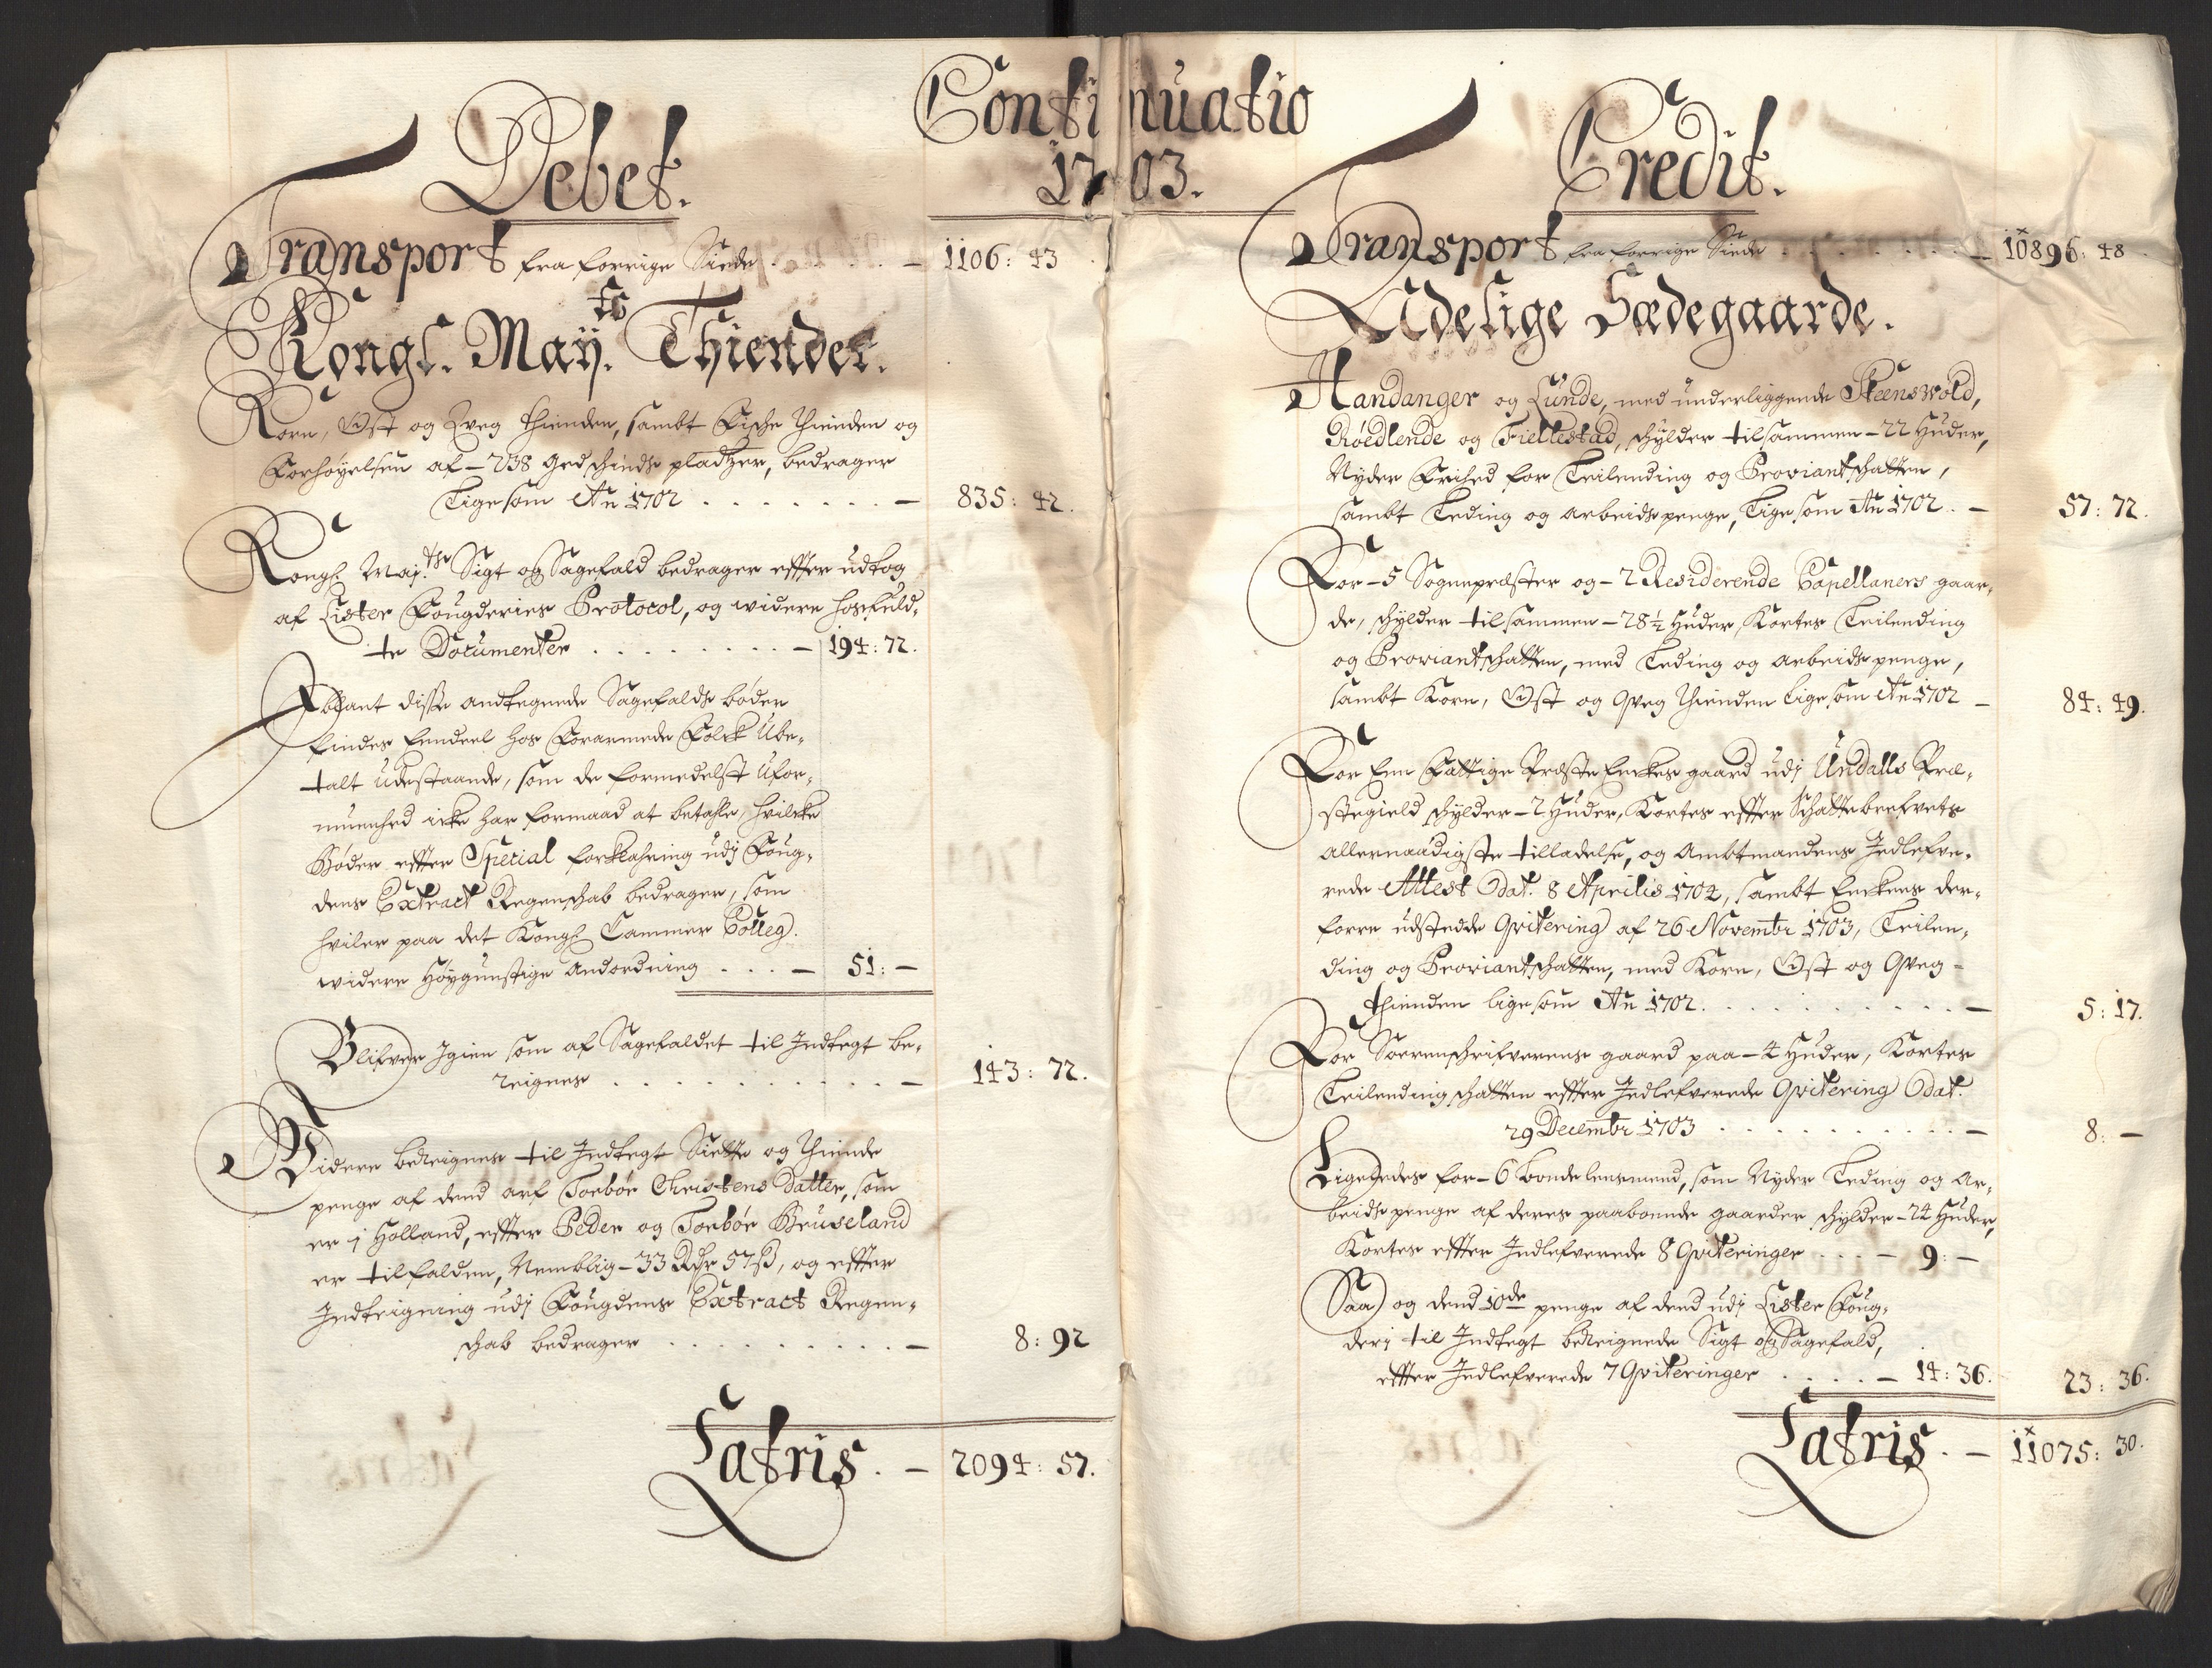 Continuatio
1703.
Debet.
Transport fra forrige Siide . . . — 1106: 43
Kongl. Maÿ.ts Thiender.
Korn, Ost og Qveg thienden, sambt Fische thienden og
Forhøyelsen af – 238 Gedschinds pladtzer, bedrager
Lige som Ao 1702 . . . . . . . — 835: 42.
Kongl. Maj.ts Sigt og Sagefald bedrager effter udtog
af Lister Fougderies Protocol, og widere hosfuld-
te Documenter . . . . . . . — 194: 72.
Iblant disse andtegnede Sagefalds bøder
findes Eendeel hos Forarmede Folck Ube-
talt udestaande, som de formedelst Ufor-
muenhed icke har formaad at betahle, hvilcke
Bøder effter Special forklahring udj Foug-
dens Extract Regenschab bedrager, som
hviler paa det Kongl. Cammer Colleg.
widere Høygunstige Andordning . . . — 51: —
Blifver Igien som af Sagefaldet til Indtegt be-
reignes . . . . . . . . . . — 143: 72.
Widere bereignes til Indtegt Siette og thiende
penge af dend arf Torbør Christens datter, som
er j Holland, effter Peder og Torbør Bruseland
er tilfalden, Nemblig – 33 Rdr 57 s, og effter
Indteigning udj Fougdens Extract Regen-
schab bedrager . . . . . . . . . — 8: 92
Latris. — 2094: 57.
Credit.
Transport fra forrige Siide . . . . . — 10896: 48
Adelige Sædegaarde.
Handanger og Lunde, med underliggende Steenswold,
Røedlende og Fiellestad, schylder tilsammen – 22 Huder,
Nyder Frihed for Leilending og Proviantschatten,
sambt Leding og arbeids penge, Lige som Ao 1702. — 57: 72.
For – 5 Sognepræster og – 2 Residerende Capellaners gaar-
de, schylder tilsammen – 28 1/2 Huder, Kortes Leilending
og Proviantschatten, med Leding og arbeids penge,
sambt Korn, Ost og Qveg thienden Lige som Ao 1702 — 84: 49.
For Enn Fattige Præste Enckes gaard udj Undalls Præ-
stegield schylder – 2 Huder, Kortes effter Schattebrefvets
allernaadigste tilladelse, og Ambtmandens Indlefve-
rede Attest dat. 8 Aprilis 1704, sambt Enckens der-
forre udstedde Qvitering af 26 Novembr 1703, Leilen-
ding og Proviantschatten, med Korn, Ost og Qveg-
thienden lige som Ao 1702. . . . . . . . . — 5: 17.
For Sorenschrifverens gaard paa – 4 Huder, Kortes
Leilending schatten effter Indlefverede Qvitering dat.
29 Decembr 1703 . . . . . . . . — 8: —
Ligeledes for – 6 bonde lensmend, som Nyder Leding og Ar-
beids penge af deres paaboende gaarder schylder – 24 Huder,
Kortes effter Indlefverede 8 Qviteringer . . . — 9: —
Saa og dend 10de penge af dend udj Lister Foug-
derj til Indtegt bereignede Sigt og Sagefald,
effter Indlefverede 7 Qviteringer . . . . — 14: 36. 23: 36.
Latris. — 11075: 30.